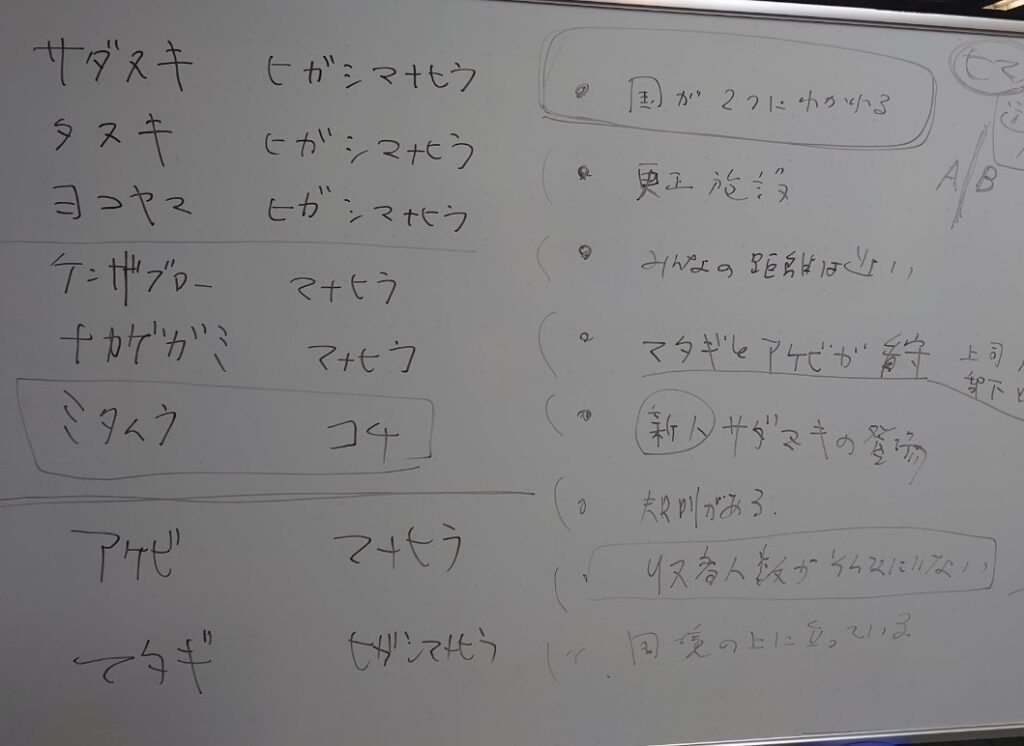 サダヌキ ヒガシマナヒラ
タヌキ ヒガシマナヒラ
ヨコヤマ ヒガシマナヒラ
ケンザブロー マナヒラ
ナカゲガミ マナヒラ
ミタムラ コチ
アケビ マナヒラ
マタギ ヒガシマナヒラ
・国が2つにわかれる
・更正施設
・みんなの距離は近い
・マタギとアケビが留守
・新人サダマキの登場
・規則がある.
・収容人数がそんなにいない
・国境の上に立っている
A/B
上司
部下